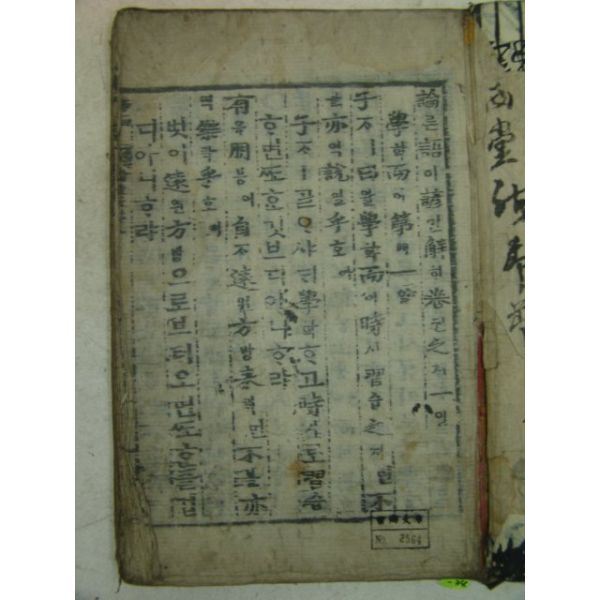 論론語어諺언解ᄒᆡ卷권之지一일
學ᄒᆞᆨ而이第뎨一일
子ᄌᆞㅣ曰왈學ᄒᆞᆨ而이時시習습之지면不
블亦역說열乎호아
子ᄌᆞㅣᄀᆞᆯᄋᆞ샤ᄃᆡ學ᄒᆞᆨᄒᆞ고時시로習습
ᄒᆞ면ᄯᅩᄒᆞᆫ깃브디아니ᄒᆞ랴
有유朋븡이自ᄌᆞ遠원方방來ᄅᆡ면不블亦
역樂락乎호아
벗이遠원方방으로브터오면ᄯᅩᄒᆞᆫ즐겁
디아니ᄒᆞ랴
堂
No. 2564